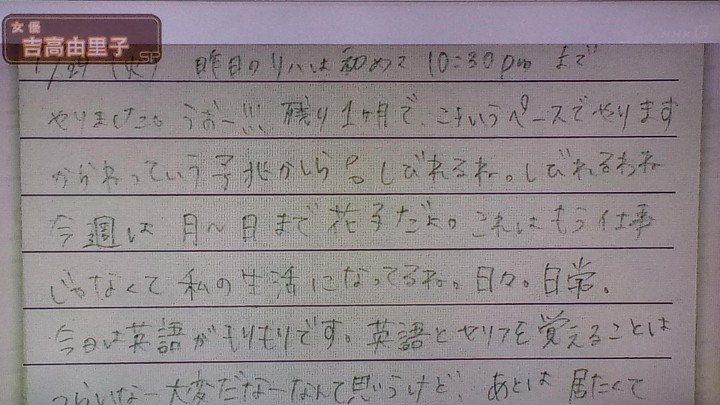 女優
吉高由里子
SP
7/29(火) 昨日のリハは初めて10:30pmまで
やりましたー。うおー!!! 残り1ヶ月で、こういうペースでやります
からねっていう予兆かしら?。しびれるね。しびれるわね
今週は月〜日まで花子だよ。これはもう仕事
じゃなくて私の生活になってるね。日々。日常。
今日は英語がもりもりです。英語とセリフを覚えることは
つらいなー大変だなーなんて思うけど、あとは居たくて